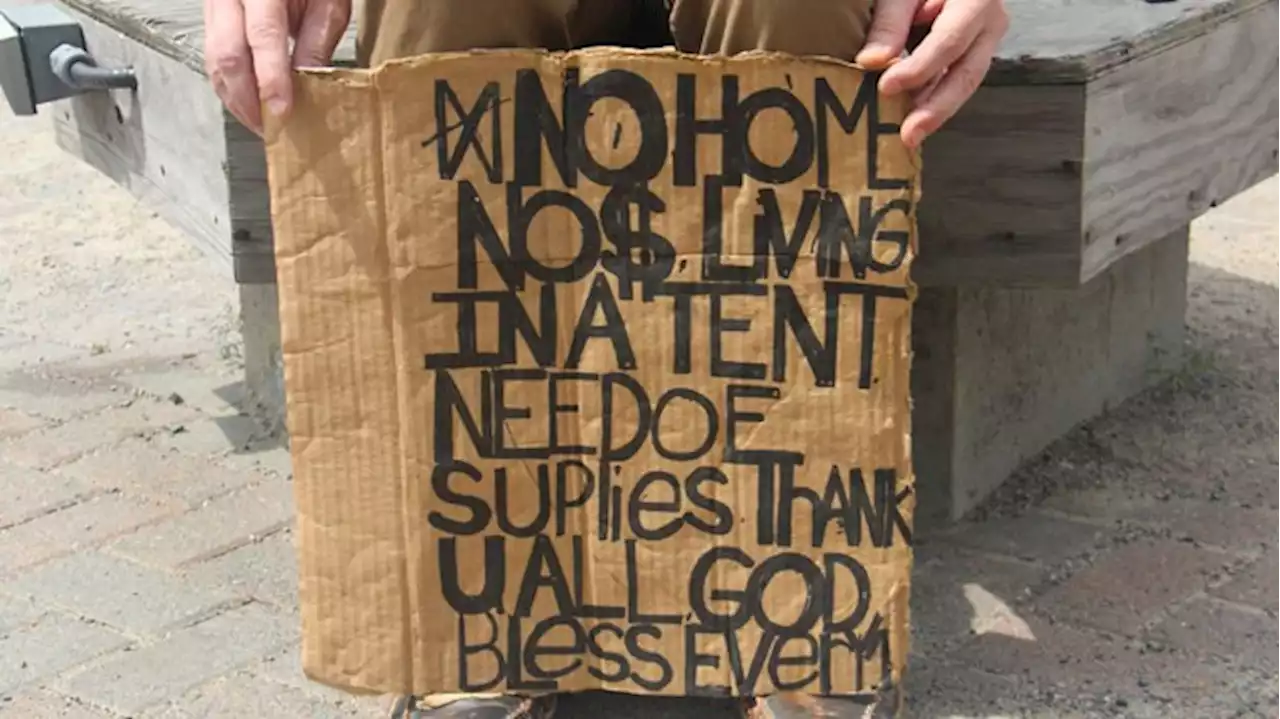 NO HOME
NO $, LiViNG
IN A TENT
NEED OF
SUPlieS ThANK
U ALL, GOD
BLesss,